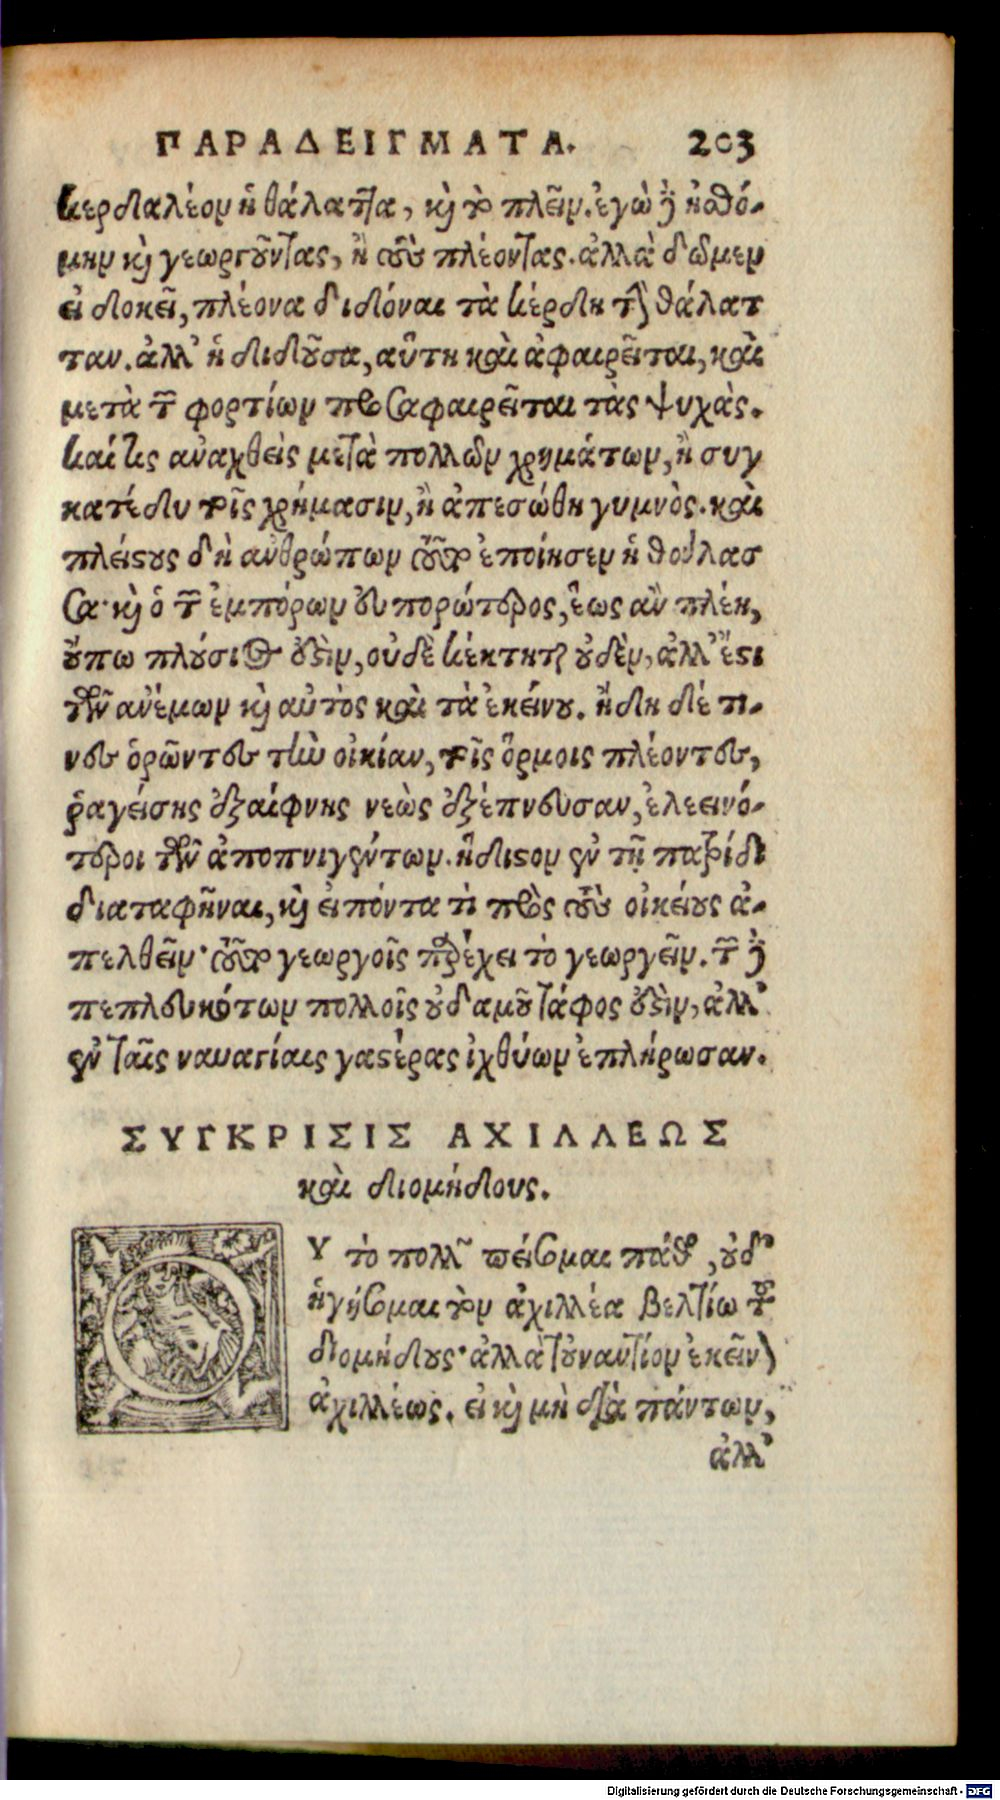 ΠΑΡΑΔΕΙΓΜΑΤΑ. 203
κερδαλέον ἡ θάλαττα, καὶ τὸ πλεῖν. ἐγὼ δὲ ᾐσθό-
μην καὶ γεωργοῦντας, ἢ τοὺς πλέοντας. ἀλλὰ δῶμεν
εἰ δοκεῖ, πλέονα διδόναι τὰ κέρδη τὴν θάλατ
ταν. ἀλλ' ἡ διδοῦσα, αὕτη καὶ ἀφαιρεῖται, καὶ
μετὰ τῶν φορτίων προσαφαιρεῖται τὰς ψυχάς.
καί τις ἀναχθεὶς μετὰ πολλῶν χρημάτων, ἢ συγ
κατέδυ τοῖς χρήμασιν, ἢ ἀπεσώθη γυμνὸς. καὶ
πλείστους δὴ ἀνθρώπων τοῦτο ἐποίησεν ἡ θάλασ
σα· καὶ ὁ τῶν ἐμπόρων εὐπορώτερος, ἕως ἂν πλέῃ,
οὔπω πλούσιος ἐστὶν, οὐδὲ κέκτηται οὐδὲν, ἀλλ' ἔστι
τῶν ἀνέμων καὶ αὐτὸς καὶ τὰ ἐκείνου. ἤδη δέ τι-
νες ὁρῶντες τὴν οἰκίαν, τοῖς ὅρμοις πλέοντες,
ῥαγείσης ἐξαίφνης νεὼς ἐξέπνευσαν, ἐλεεινό-
τεροι τῶν ἀποπνιγέντων. ἥδιστον ἐν τῇ πατρίδι
διαταφῆναι, καὶ εἰπόντα τι πρὸς τοὺς οἰκείους ἀ-
πελθεῖν· τοῦτο γεωργοῖς παρέχει τὸ γεωργεῖν. τῶν δὲ
πεπλευκότων πολλοῖς οὐδαμοῦ τάφος ἐστὶν, ἀλλ'
ἐν ταῖς ναυαγίαις γαστέρας ἰχθύων ἐπλήρωσαν.
ΣΥΓΚΡΙΣΙΣ ΑΧΙΛΛΕΩΣ
καὶ Διομήδους.
ΟΥ τὸ πολλῶν πείσομαι πάθος, οὐδ'
ἡγήσομαι τὸν ἀχιλλέα βελτίω τοῦ
διομήδους· ἀλλὰ τοὐναντίον ἐκεῖνον
ἀχιλλέως. εἰ καὶ μὴ διὰ πάντων,
ἀλλ'
Digitalisierung gefördert durch die Deutsche Forschungsgemeinschaft - DFG